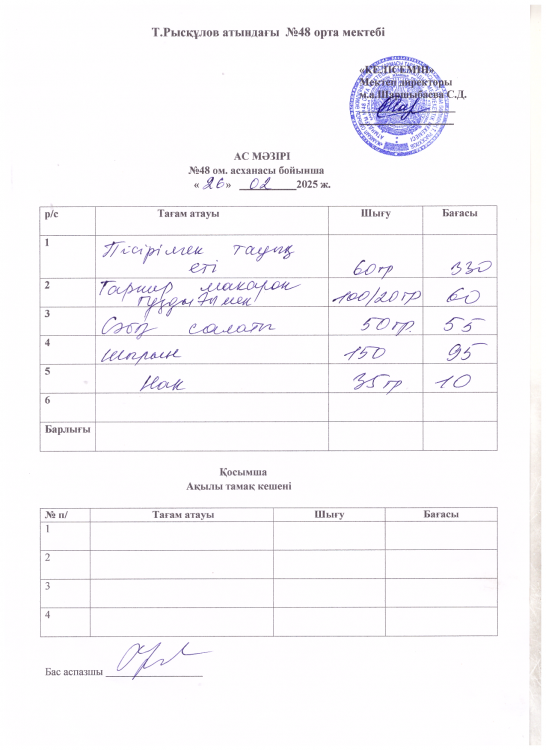 Т.Рысқұлов атындағы №48 орта мектебі
«КЕЛІСЕМІН»
Мектеп директоры
м.а.Шаршыбаева С.Д.
АС МӘЗІРІ
№48 ом. асханасы бойынша
« 26 » 02 2025 ж.
р/с Тағам атауы Шығу Бағасы
1 Пісірілген тауық
еті 60гр 330
2 Гарнир макарон
тұздығымен 100/20гр 60
3 Сәбіз салаты 50гр. 55
4 шырын 150 95
5 Нан 35гр 10
6
Барлығы
Қосымша
Ақылы тамақ кешені
№ п/ Тағам атауы Шығу Бағасы
1
2
3
4
Бас аспазшы